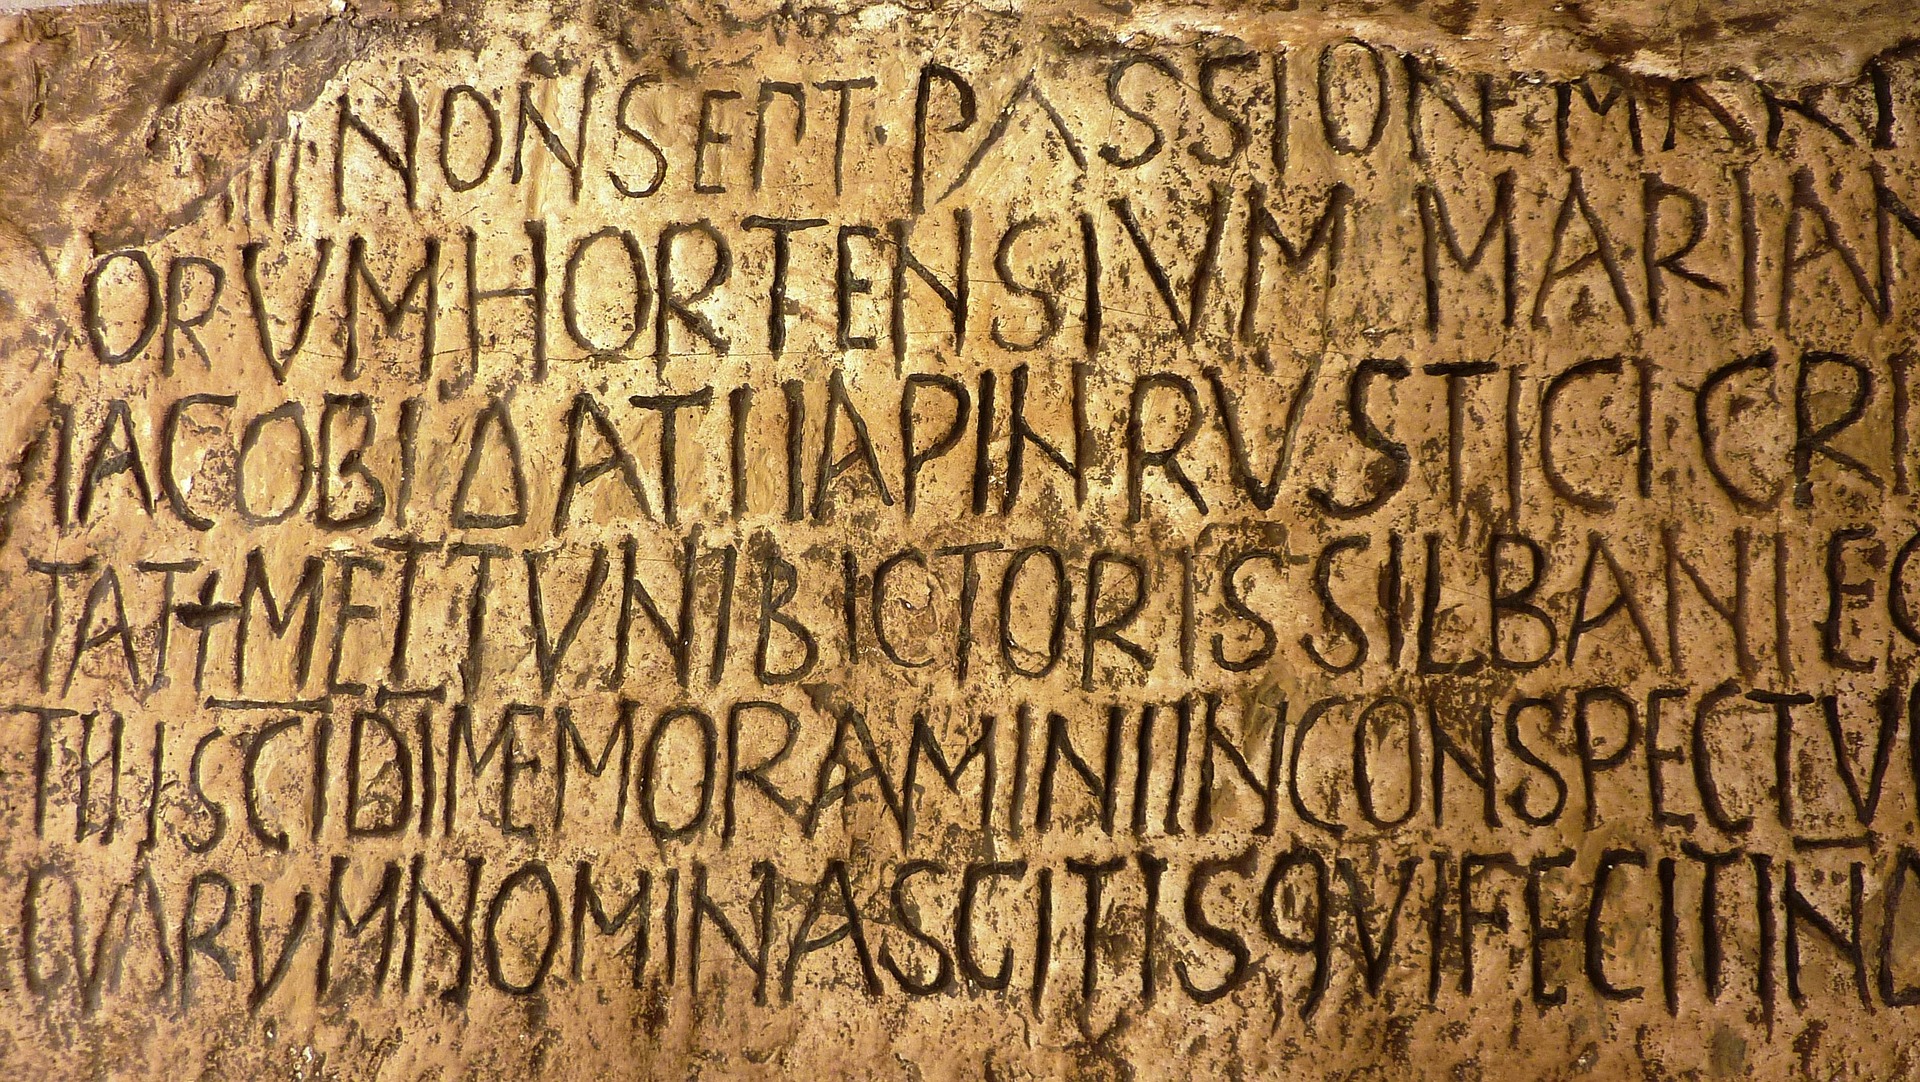 III NON SEPT· PASSIONE MARTVR
ORVM HORTENSIVM MARIAN
IACOBI ΔATI IAPIN RVSTICI CRI
TATI METTVNI BICTORIS SILBANI EG
TII SCI DI MEMORAMINI IN CONSPECTV
QVARVM NOMINA SCIT IS QVI FECIT IN D